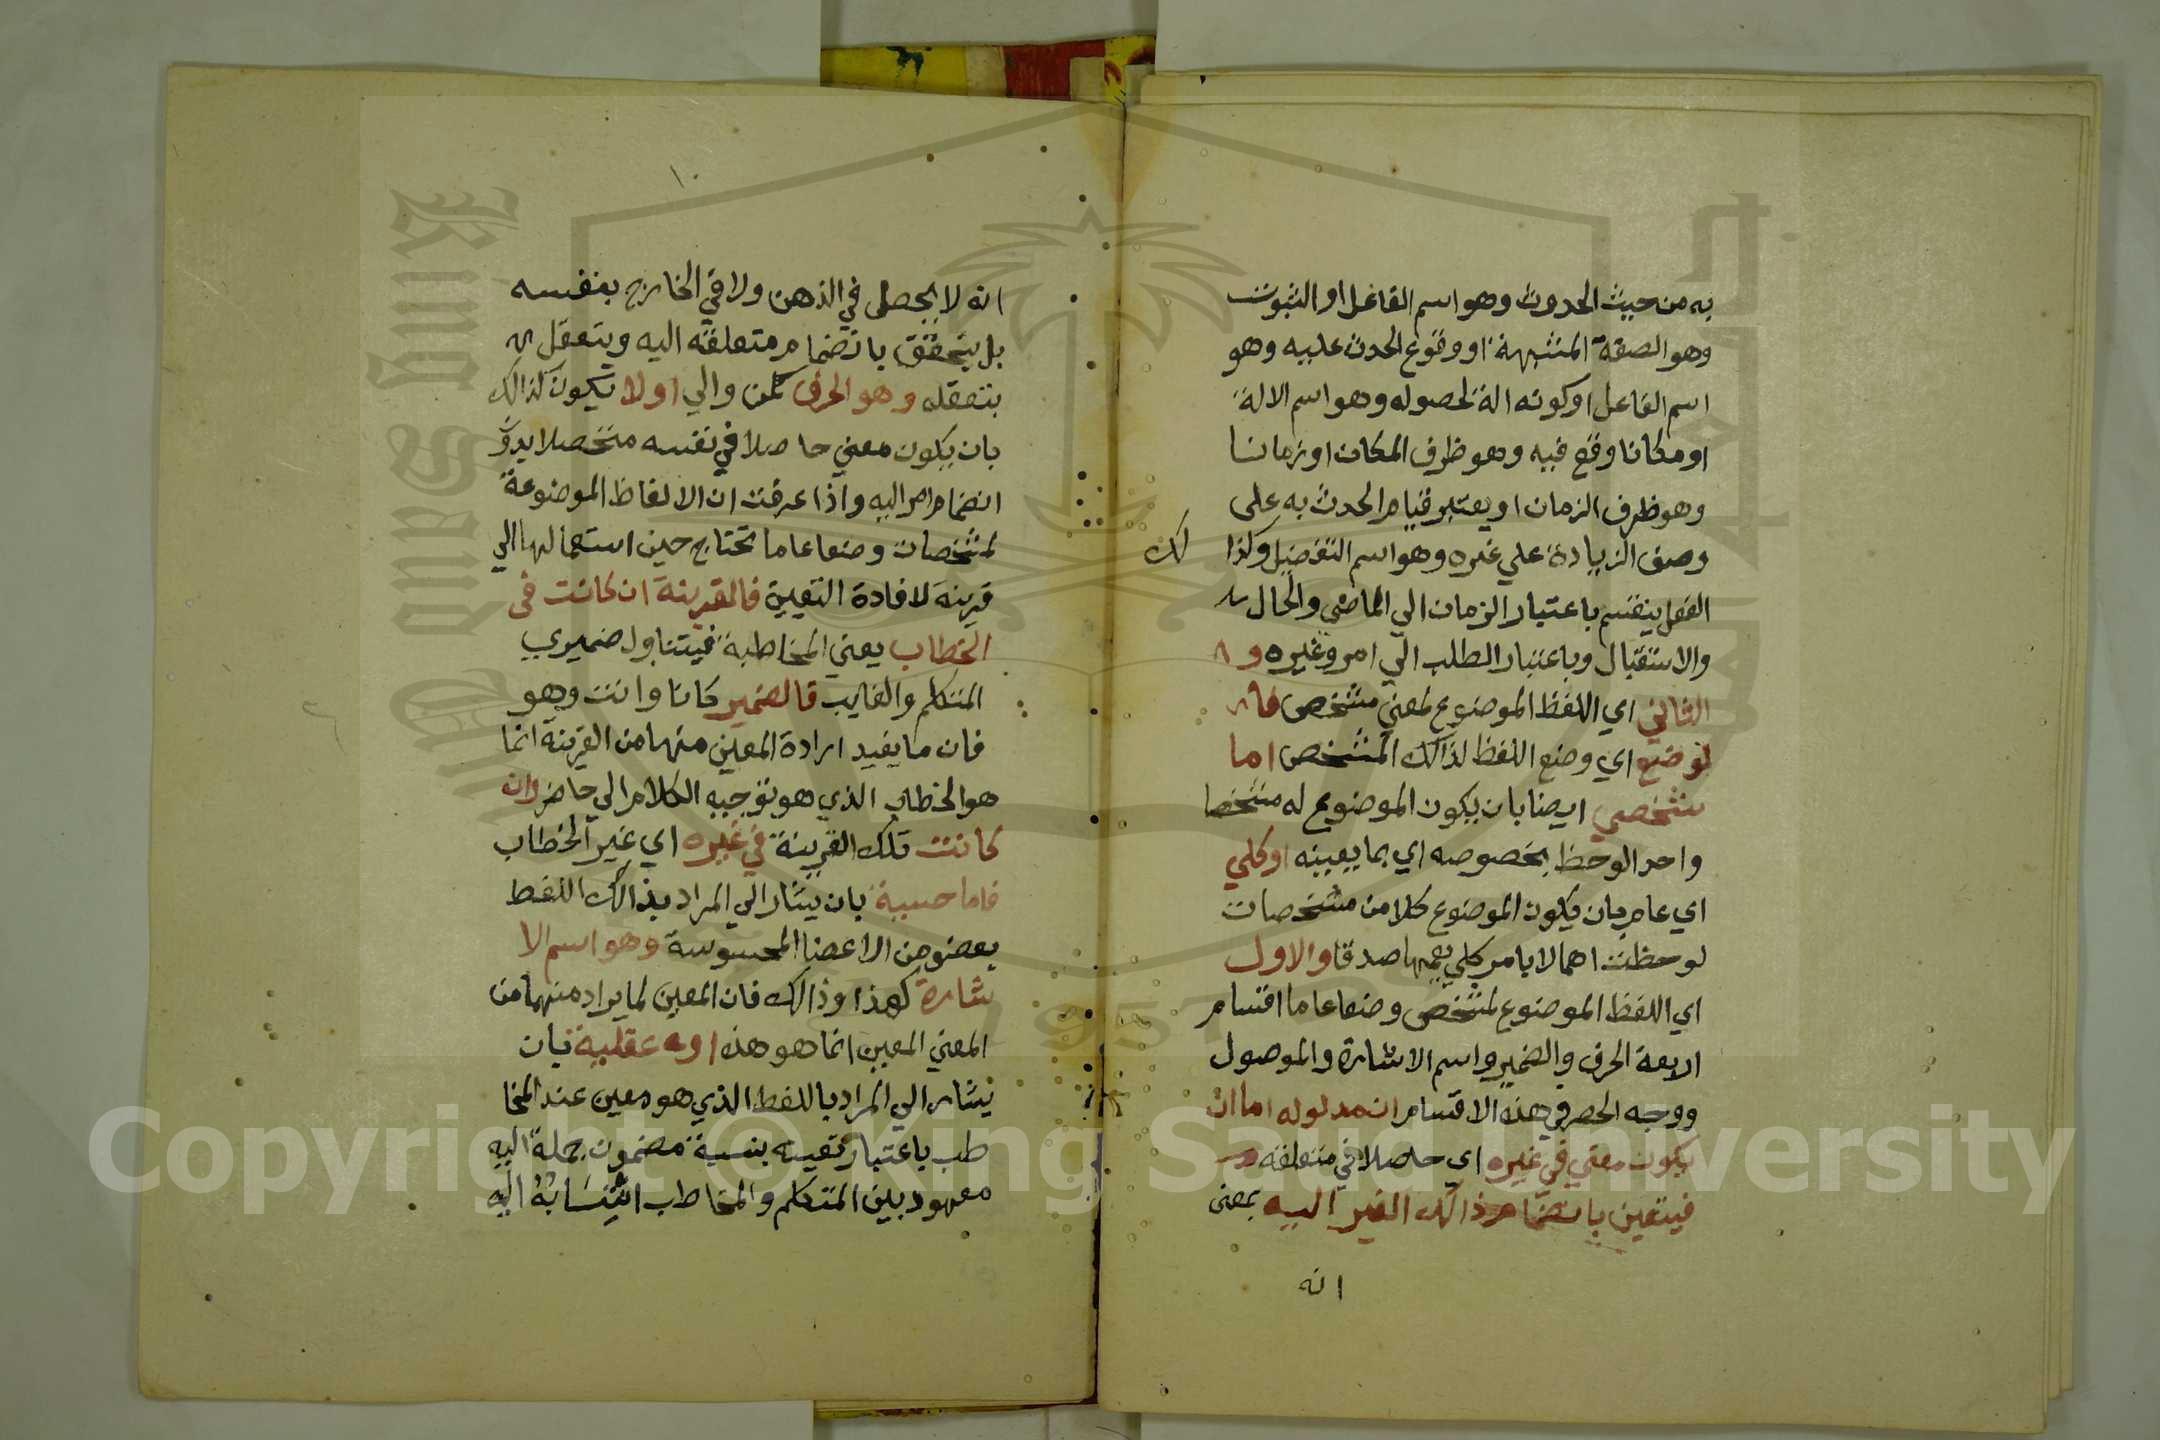 به من حيث الحدوث وهو اسم الفاعل او الثبوت
وهو الصفة المشبهة او وقوع الحدث عليه وهو
اسم الفاعل او كونه الة لحصوله وهو اسم الالة
او مكانا وقع فيه وهو ظرف المكان او زمانا
وهو ظرف الزمان او يعتبر قيام الحدث به على
وصف الزيادة علي غيره وهو اسم التفضيل وكذا
لك
الفعل ينقسم باعتبار الزمان الي الماضي والحال
والاستقبال وباعتبار الطلب الي امر وغيره و
الثاني اي اللفظ الموضوع لمعني مشخص فا
لوضع اي وضع اللفظ لذالك المشخص اما
شخصي ايضا بان يكون الموضوع له مشخصا
واحد الوحظ بخصوصه اي بما يعينه او كلي
اي عام بان يكون الموضوع كلا من مشخصات
لوحظت اهمالا بامر كلي يعمها صدقا والاول
اي اللفظ الموضوع لمشخص وضعا عاما اقسام
اربعة الحرف والضمير واسم الاشارة والموصول
ووجه الحصر في هذه الاقسام ان مدلوله اما ان
يكون معني في غيره اي حاصلا في متعلقه
فيتعين بانضمام ذالك الغير اليه بمعنى
انه
١٠
انه لا يحصل في الذهن ولا في الخارج بنفسه
بل يتحقق بانضمام متعلقه اليه ويتعقل
بتعقله وهو الحرف كمن والي اولا يكون كذالك
بان يكون معني حاصلا في نفسه متحصلا بدون
انضمام امر اليه واذا عرفت ان الالفاظ الموضوعة
لمشخصات وضعا عاما تحتاج حين استعمالها الي
قرينة لافادة التعيين فالقرينة ان كانت في
الخطاب يعني المخاطبة فيتناول ضميري
المتكلم والغايب فالضمير كانا وانت وهو
فان ما يفيد ارادة المعين منها من القرينة انما
هو الخطاب الذي هو توجيه الكلام الي حاضر وان
كانت تلك القرينة في غيره اي غير الخطاب
فاما حسية بان يشار الي المراد بذالك اللفظ
بعضو من الاعضا المحسوسة وهو اسم الا
شارة كهذا وذالك فان المعين لما يراد منهما من
المعني المعين انما هو هذه او عقلية بان
يشار الي المراد باللفظ الذي هو معين عند المخا
طب باعتبار تعينه بنسبة مضمون جملة اليه
معهود بين المتكلم والمخاطب انتسابه اليه
Copyright © King Saud University
King Saud University
1957